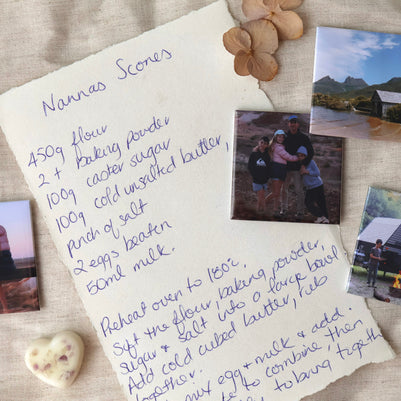 Nannas Scones
450g flour
2 t baking powder
100g caster sugar
100g cold unsalted butter,
pinch of salt
2 eggs beaten
50ml milk.
Preheat oven to 180°c
Sift the flour, baking powder,
sugar & salt into a large bowl
Add cold cubed butter, rub
together.
mix egg & milk & add.
to combine then
to bring together